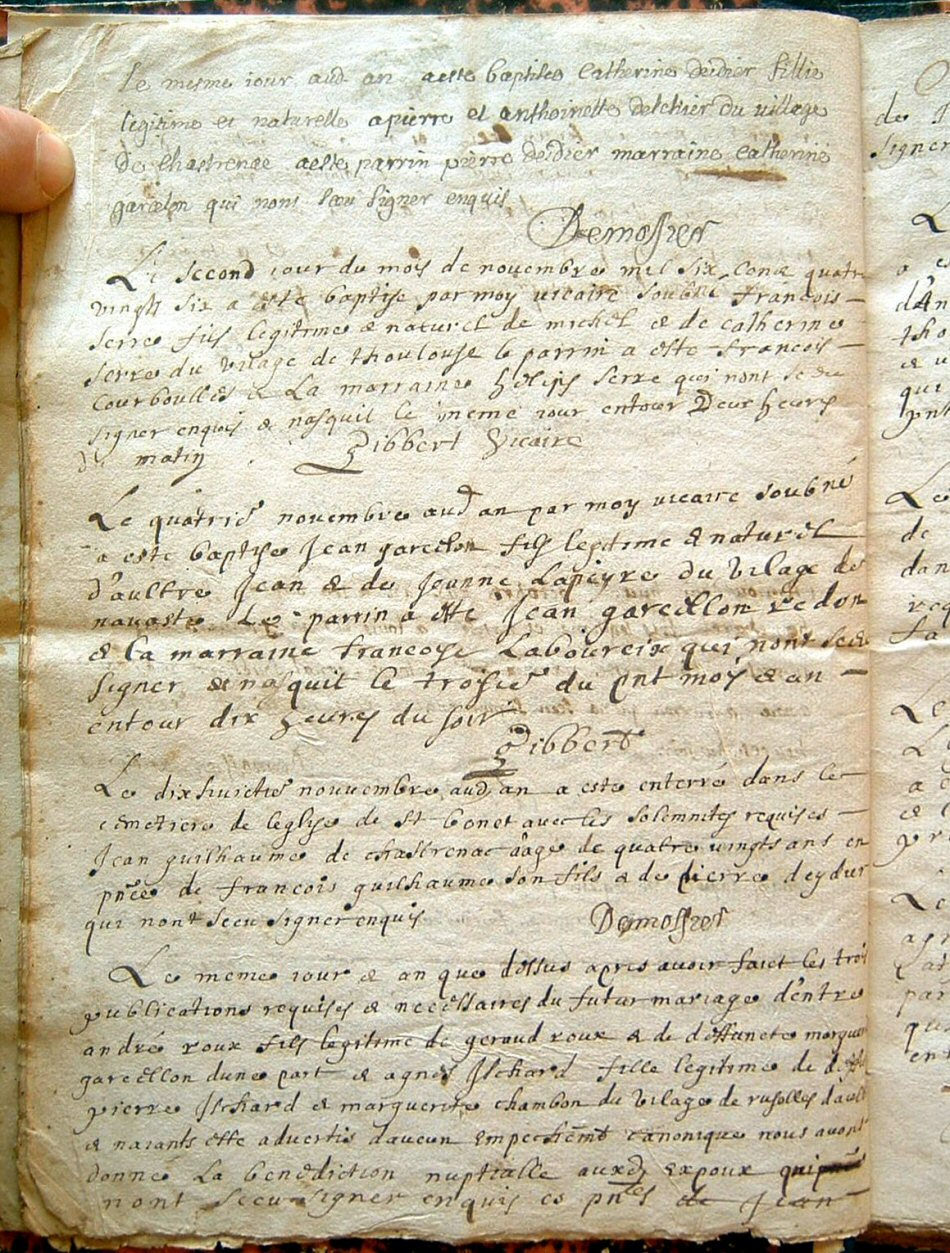 le mesme iour aud an a este baptisee Catherine deidier fillie
legitime et naturelle a pierre et anthoinette delchier du village
de Chastrenac a este parrin pierre deidier marraine Catherine
garcelon qui nont sceu signer enquis
Demossier
Le second iour du mois de novembre mil six Cent quatre
vingt six a este baptise par moy vicaire soubne françois
serre fils legitime & naturel de michel & de catherine
serre du vilage de thoulouse le parrin a este françois
courboulles & La marraine helips serre qui nont sceu
signer enquis & nasquit le meme iour entour Deux heures
du matin Gibbert Vicaire
Le quatrie novembre aud an par moy vicaire soubné
a este baptise Jean garcellon fils legitime & naturel
d'aultre Jean & de Jeanne Lapeyre du vilage de
navaste Le parrin a ette Jean garcellon redon
& la marraine françoise Laboureix qui nont sceu
signer & nasquit le troisie du pnt mois & an
entour dix heures du soir
Gibbert
Le dixhuictie nouvembre aud an a este enterré dans le
cemetiere de leglise de st bonet avec les solemnites requises
Jean guilhaume de chastrenac aâgé de quatre vingts ans en
pnce de françois guilhaume son fils & de pierre deydier
qui nont sceu signer enquis Demossier
Le meme iour & an que dessus apres avoir faict les trois
publications requises & necessaires du futur mariage d'entre
andré roux fils legitime de geraud roux & de deffuncte marguer
garcellon dune part & agnes Ischard fille legitime de
pierre Ischard & marguerite chambon du vilage de
& naiants este advertis daucun Empechemt canonique nous avons
donné La benediction nuptialle auxd Expoux qui
nont sceu signer enquis es pntes de Jean